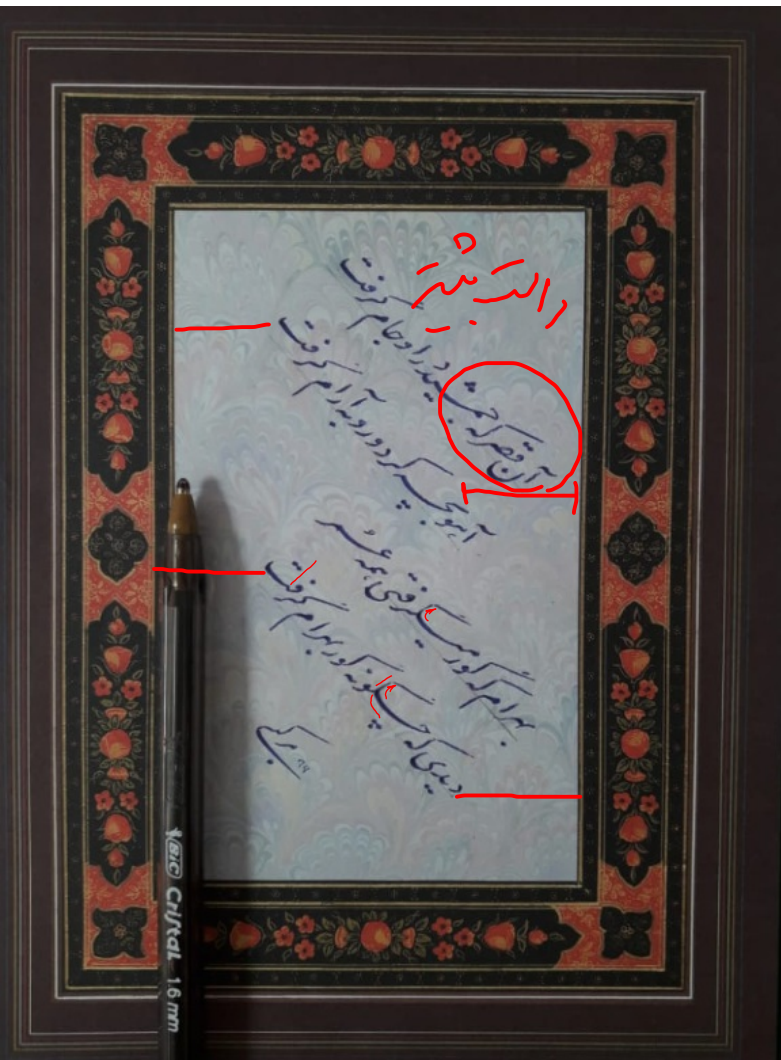 آن قصر که جمشید در او جام گرفت
آهو بچه کرد و روبه آرام گرفت
بهرام که گور میگرفتی همه عمر
دیدی که چگونه گور بهرام گرفت
BIC Cristal 1.6 mm